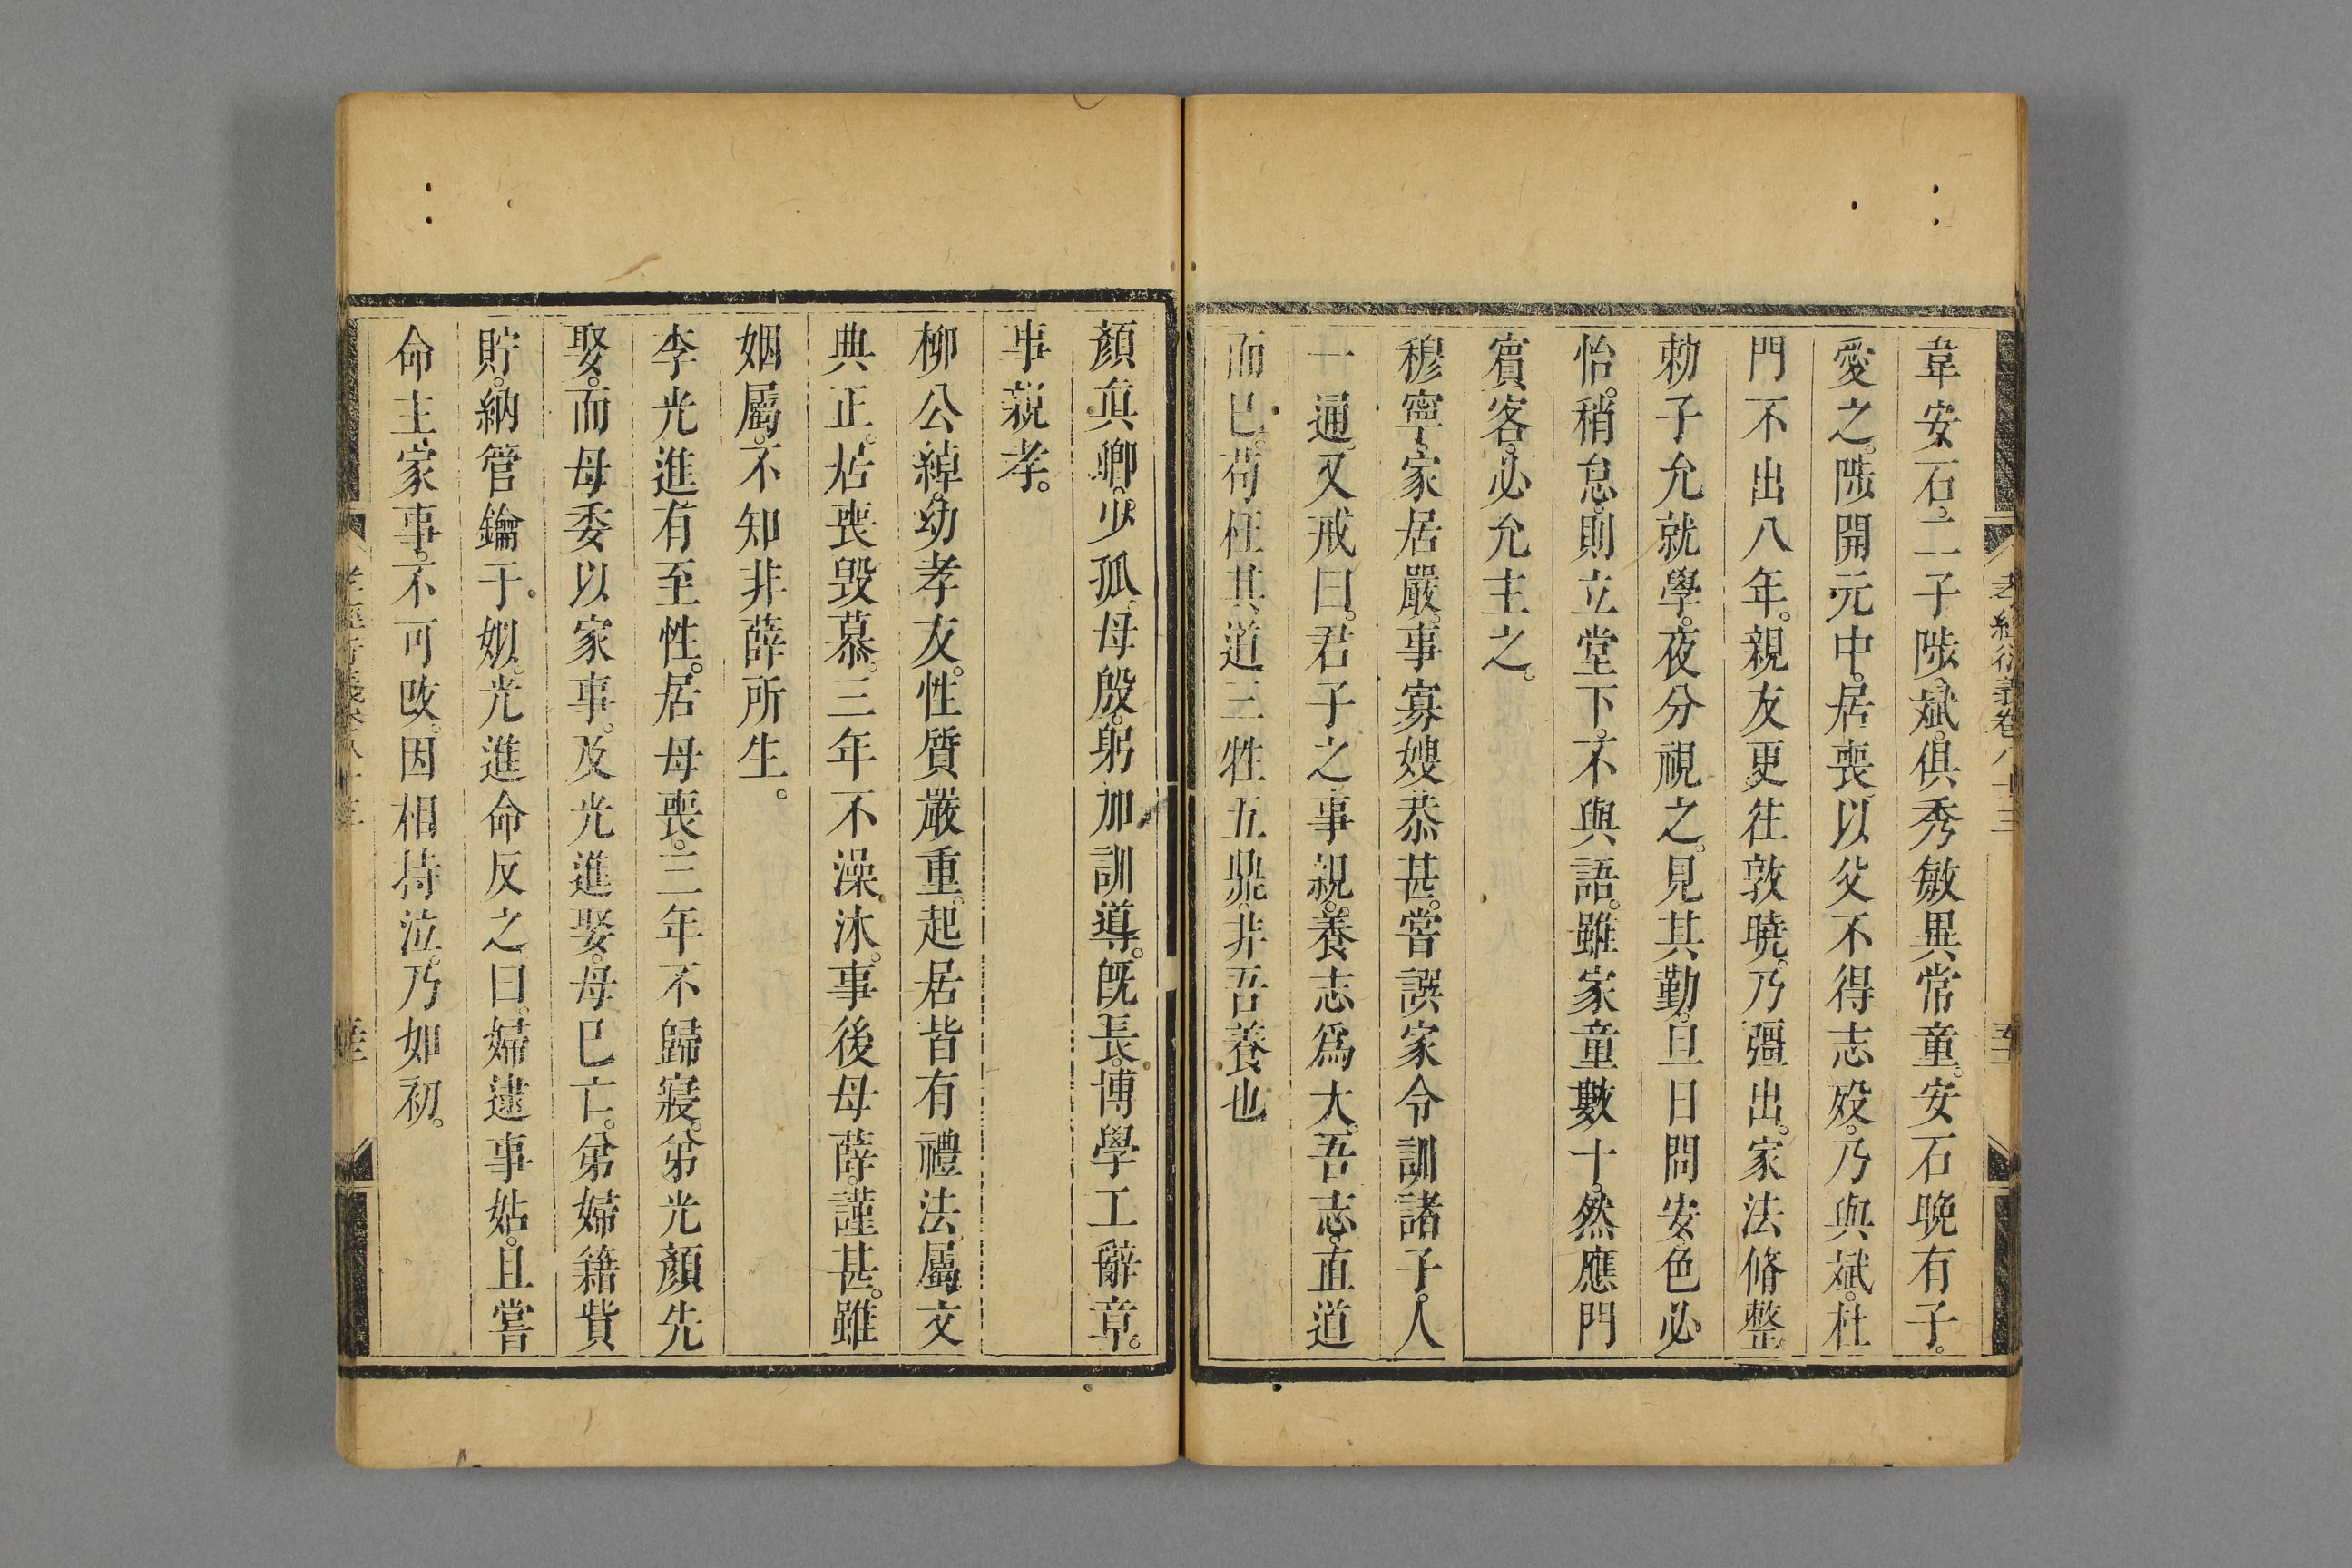 孝經衍義卷八十三
韋安石。二子陟。斌。俱秀敏異常童。安石晚有子。
愛之。陟開元中。居喪。以父不得志歿。乃與斌。杜
門不出八年。親友更徃敦曉。乃彊出。家法脩整。
勑子允就學。夜分視之。見其勤。旦日問安。色必
怡。稍怠。則立堂下。不與語。雖家童數十。然應門
賓客。必允主之。
穆寧。家居嚴。事寡嫂恭甚。嘗譔家令訓諸子。人
一通。又戒曰。君子之事親。養志爲大。吾志。直道
而已。苟枉其道。三牲五鼎。非吾養也
顏眞卿。少孤。母殷。躬加訓導。旣長。博學工辭章。
事親孝。
柳公綽。幼孝友。性質嚴重。起居皆有禮法。屬文
典正。居喪毀慕。三年不澡沐。事後母薛。謹甚。雖
姻屬。不知非薛所生。
李光進有至性。居母喪。三年不歸寢。弟光顏先
娶。而母委以家事。及光進娶。母已亡。弟婦籍貲
貯。納管鑰于姒。光進命反之曰。婦逮事姑。且嘗
命主家事。不可改。因相持泣。乃如初。